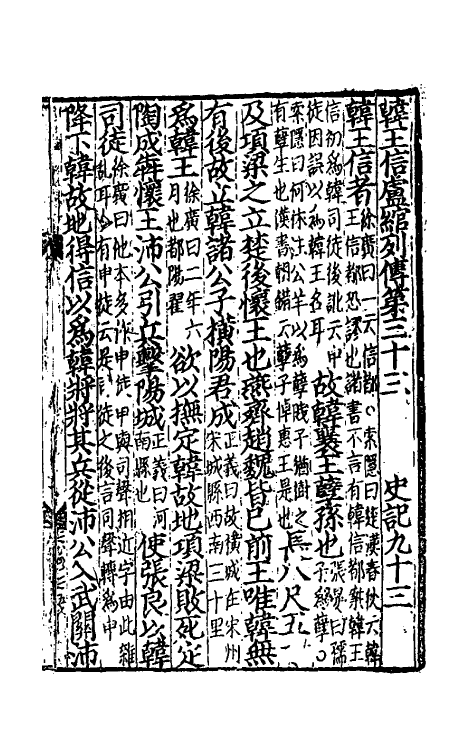 韓王信盧綰列傳第三十三 史記九十三
韓王信者徐廣曰一云信都。索隱曰楚漢春秋云韓
王信都恐謬也諸書不言有韓信都案韓王
信初為韓司徒後訛云申
徒因誤以為韓王名耳故韓襄王孽孫也張晏曰孺
子為孽。
索隱曰何休注公羊以為孽賤子猶樹之
有孽生也漢書晁錯云孽子悼惠王是也長八尺五寸
及項梁之立楚後懷王也燕齊趙魏皆已前王唯韓無
有後故立韓諸公子橫陽君成正義曰故橫城在宋州
宋城縣西南三十里
為韓王徐廣曰二年六
月也都陽翟欲以撫定韓故地項梁敗死定
陶成犇懷王沛公引兵擊陽城正義曰河
南縣也使張良以韓
司徒徐廣曰他本多作申徒申與司聲相近字由此雜
亂耳今有申徒云是司徒之後言司聲轉為申
降下韓故地得信以為韓將將其兵從沛公入武關沛